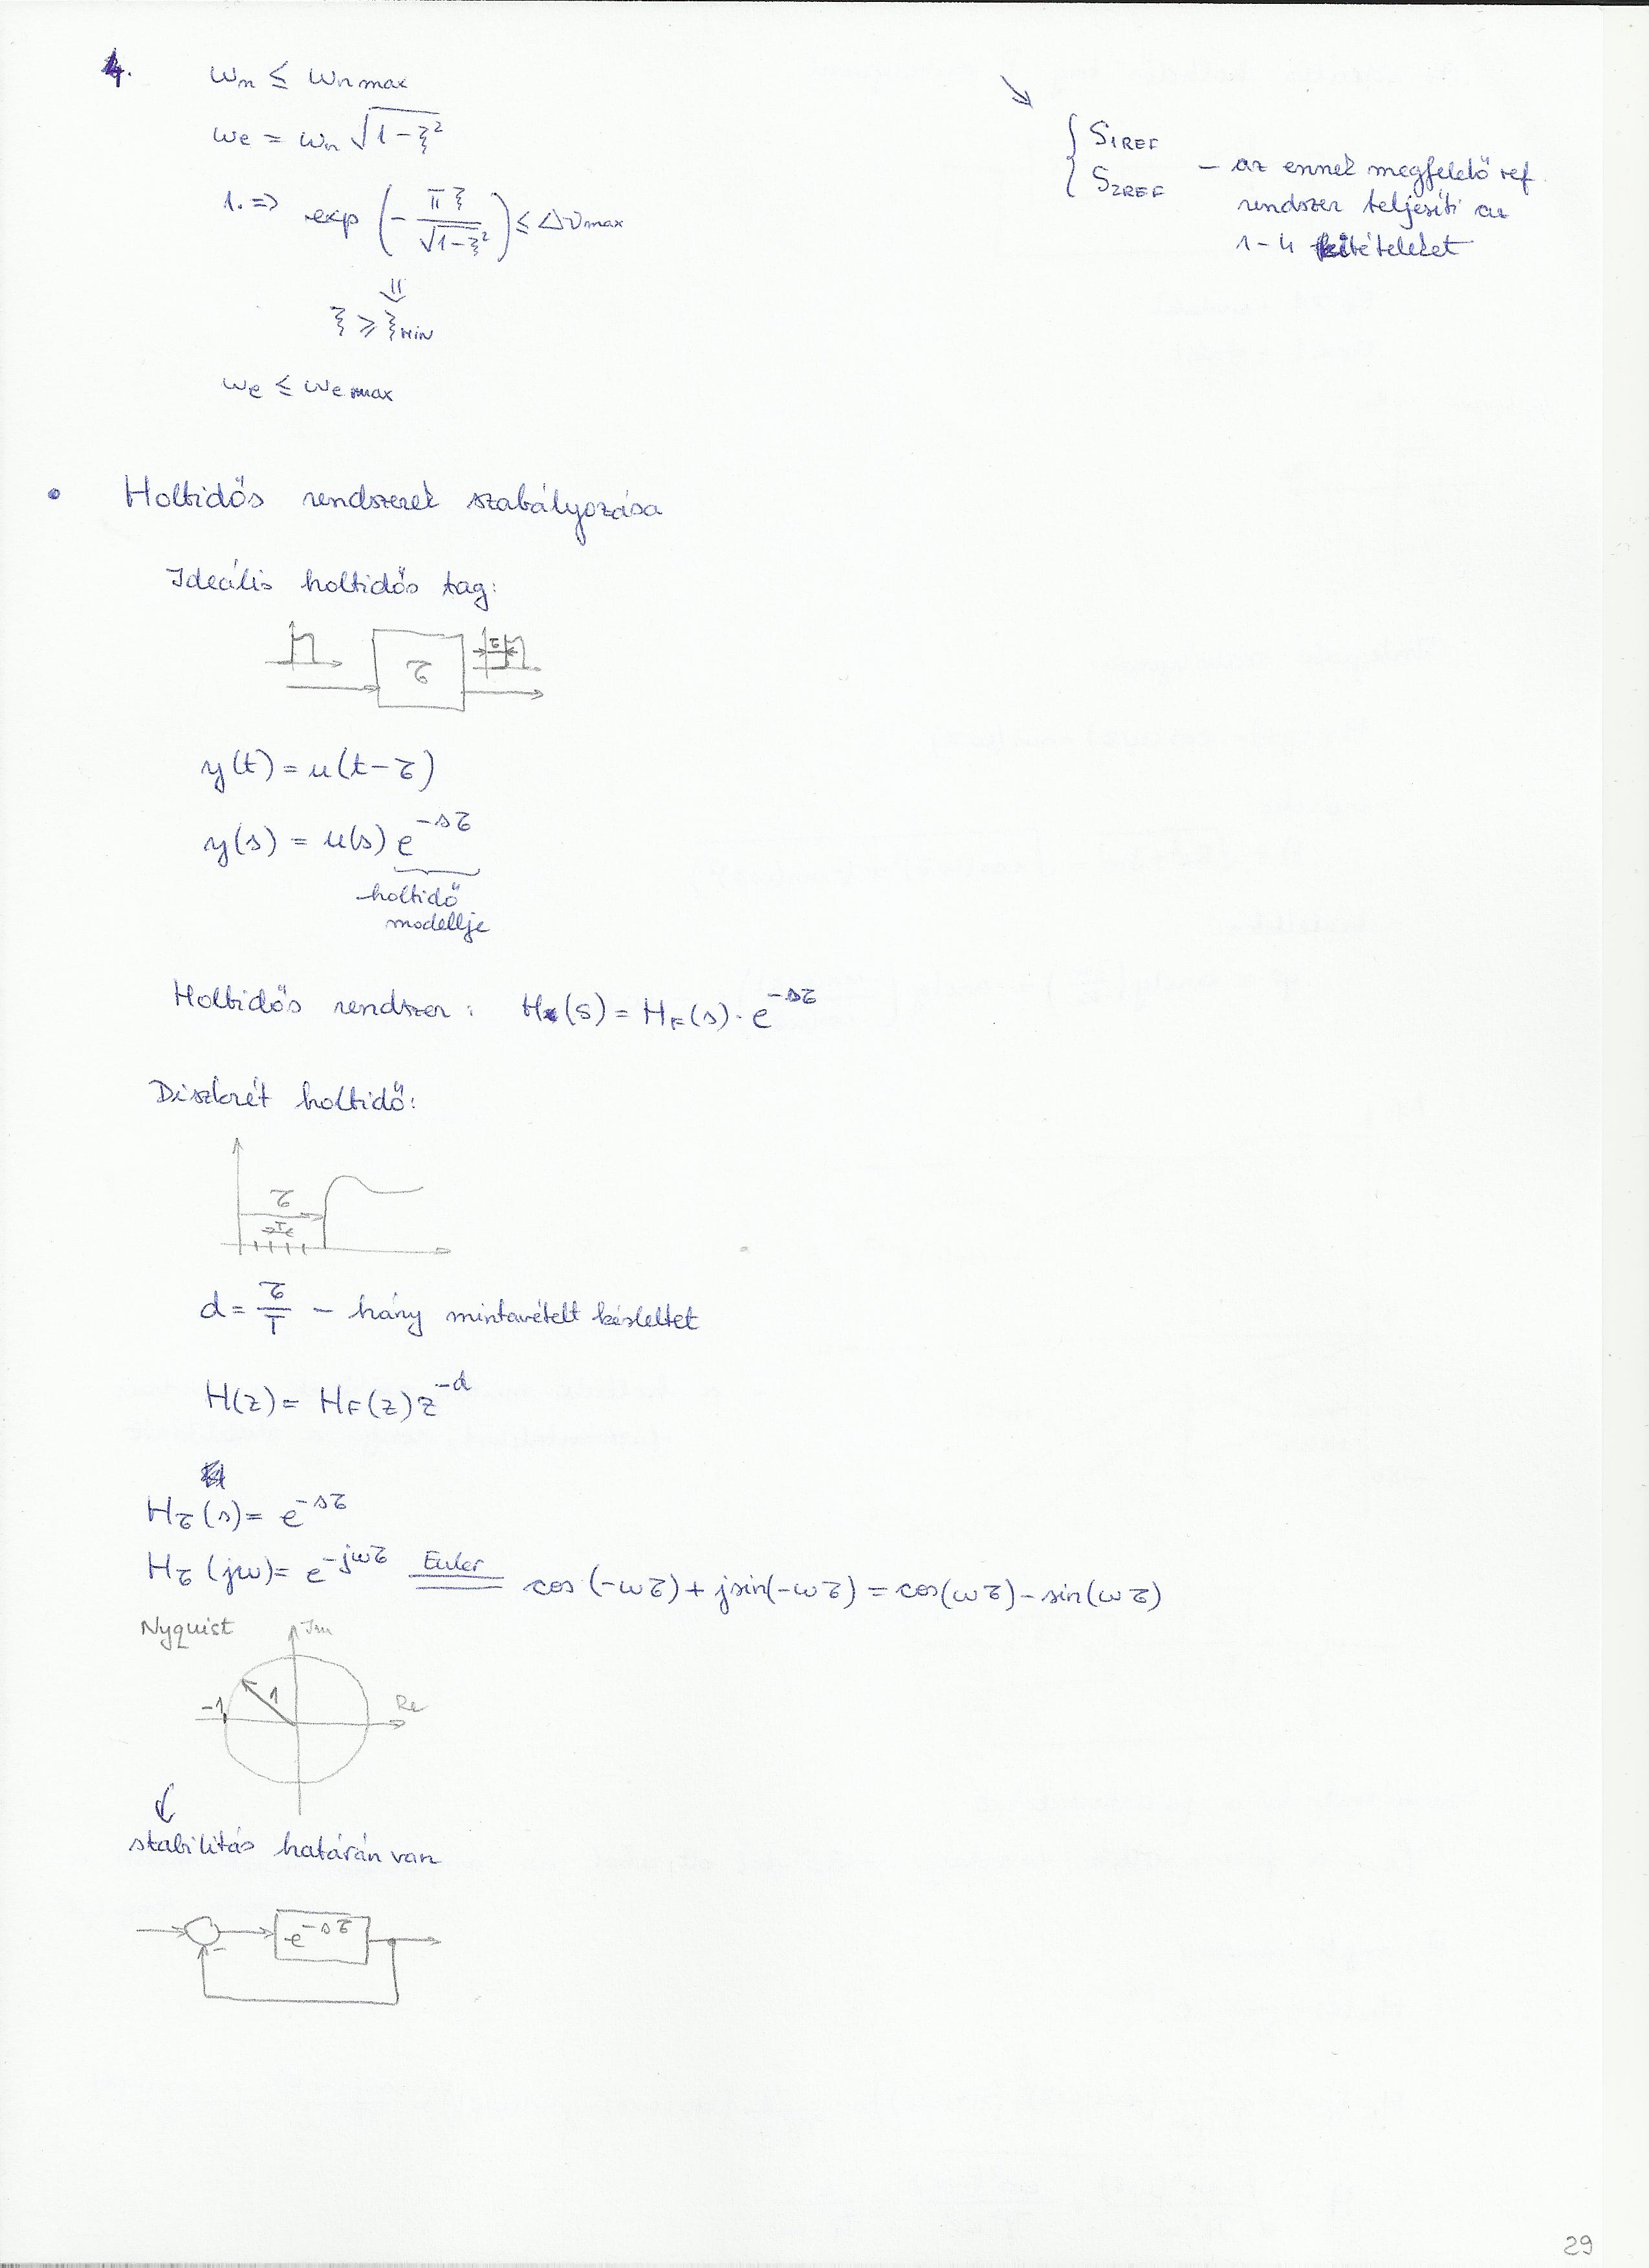 4.
ωn ≤ ωn max
ωe = ωn √(1-ξ²)
1. => exp (- πξ / √(1-ξ²)) ≤ Δvmax
⇓
ξ ≥ ξMIN
ωe ≤ ωe max
{ S1REF
S2REF
- az ennek megfelelő ref.
rendszer teljesíti az
1-4 feltételeket
• Holtidős rendszerek szabályozása
Ideális holtidős tag:
τ
τ
y(t) = u(t-τ)
y(s) = u(s) e^-sτ
holtidő
modellje
Holtidős rendszer: H(s) = HF(s) · e^-sτ
Diszkrét holtidő:
τ
T
d = τ/T - hány mintavételt késleltet
H(z) = HF(z) z^-d
Hτ(s) = e^-sτ
Hτ(jω) = e^-jωτ =Euler= cos(-ωτ) + jsin(-ωτ) = cos(ωτ) - sin(ωτ)
Nyquist
Im
-1
1
Re
stabilitás határán van
-
e^-sτ
29